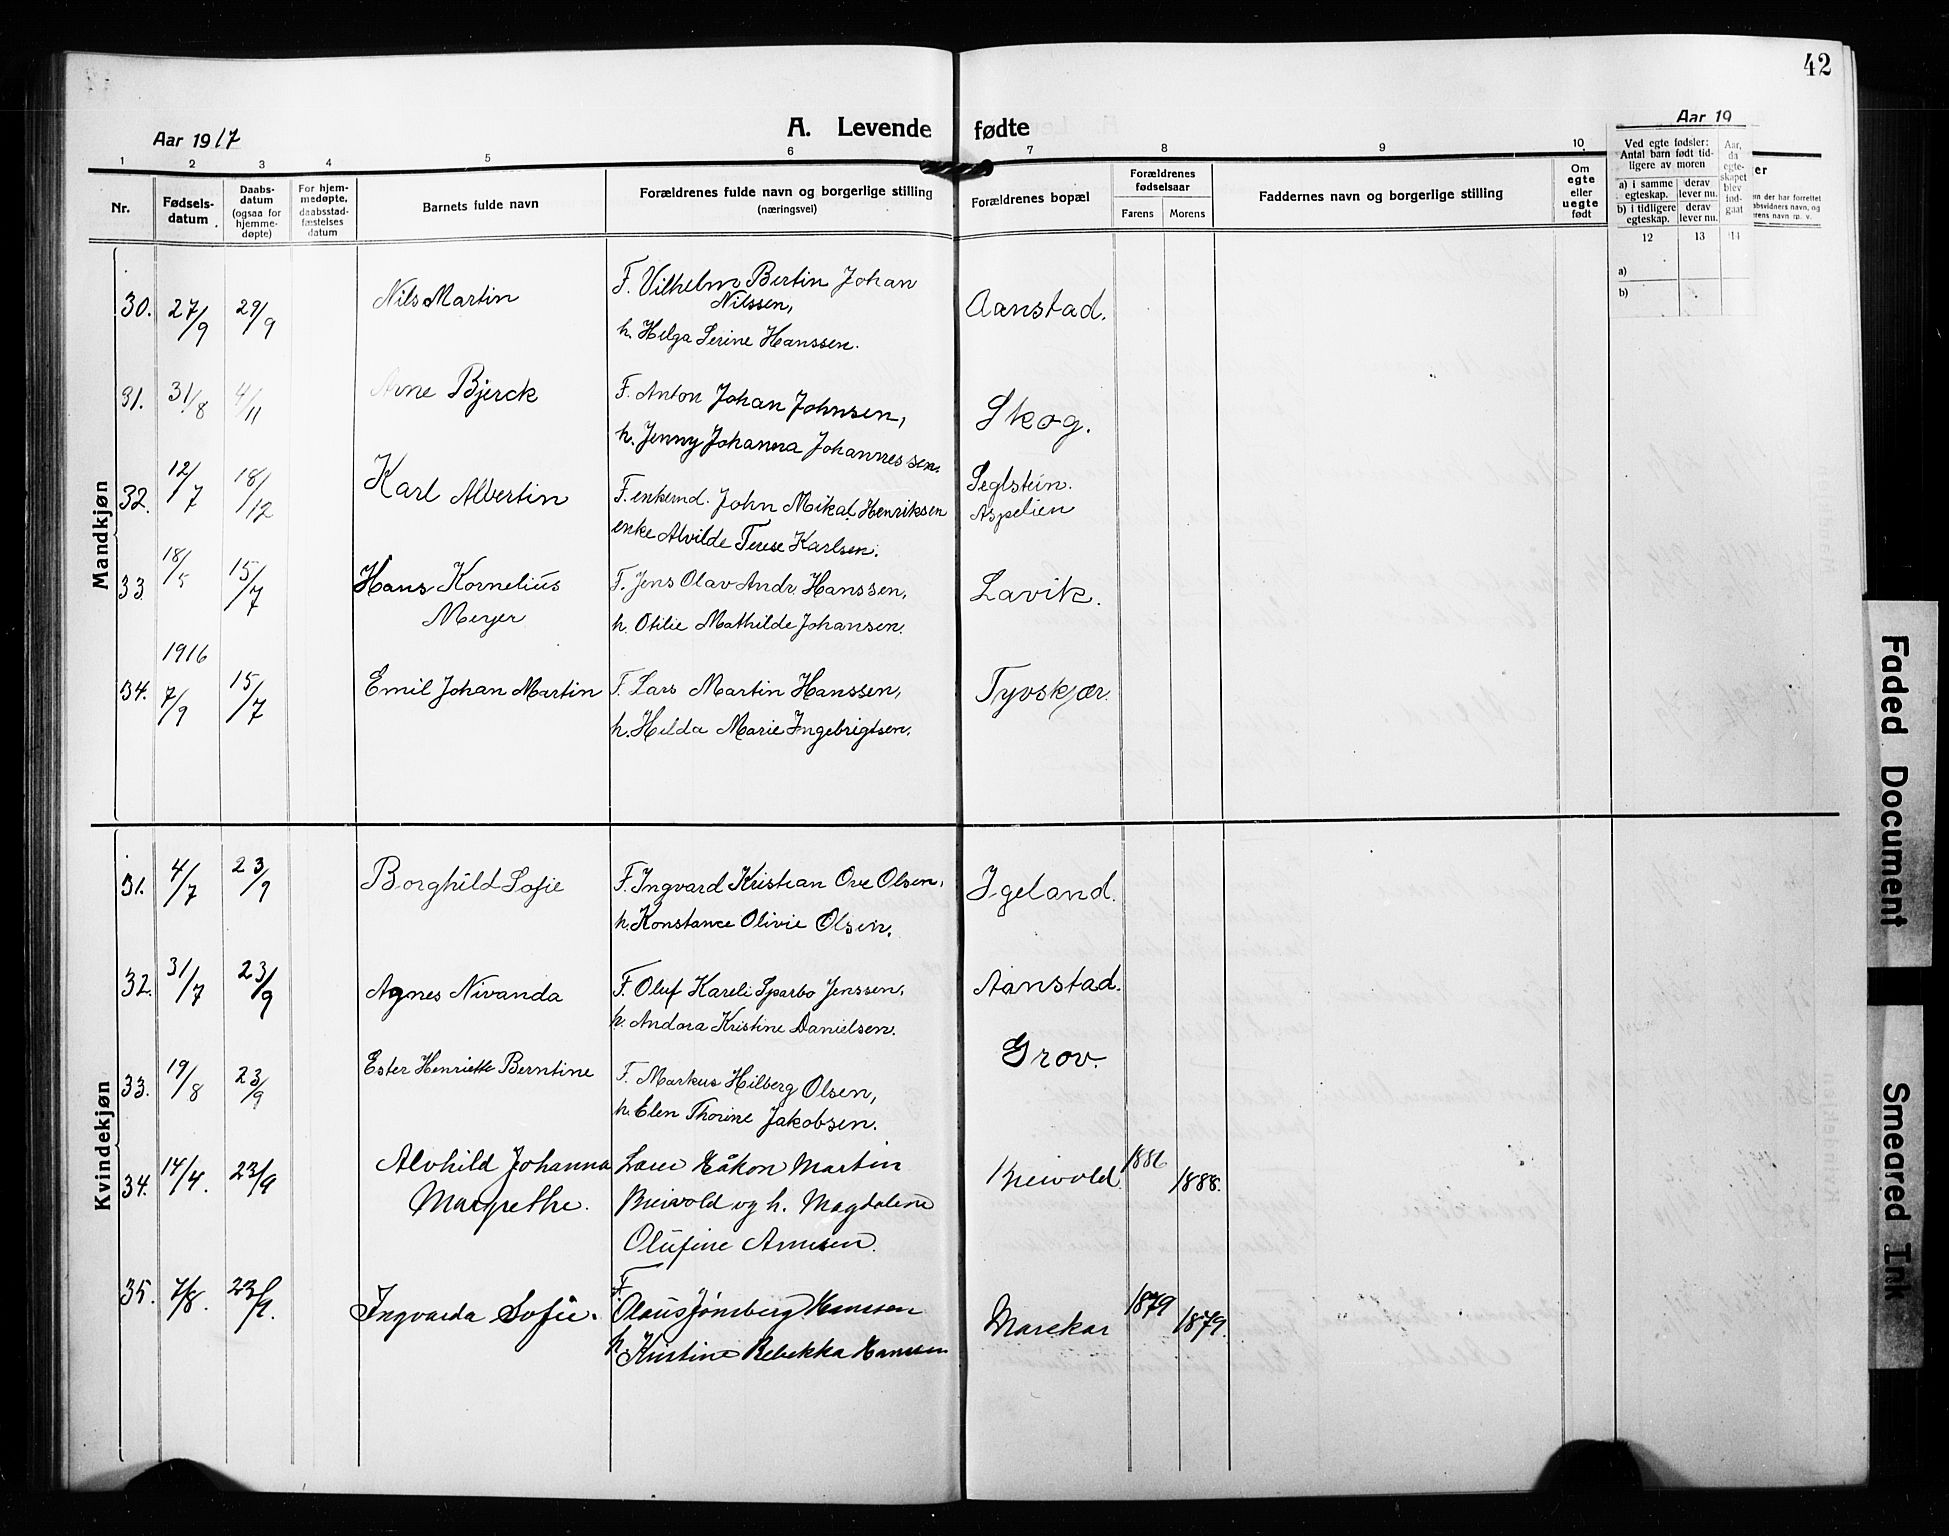 42
Aar 1917
A. Levende fødte
Aar 19
1 2 3 4 5 6 7 8 9 10
Nr.
Fødsels-
datum
Daabs-
datum
(ogsaa for
hjemme-
døpte)
For hjem-
medøpte,
daabsstad-
fæstelses
datum
Barnets fulde navn
Forældrenes fulde navn og borgerlige stilling
(næringsvei)
Forældrenes bopæl
Forældrenes
fødselsaar
Farens Morens
Faddernes navn og borgerlige stilling
Om
egte
eller
uegte
født
Ved egte fødsler:
Antal barn født tid-
ligere av moren
a) i samme
egteskap.
derav
lever nu.
b) i tidligere
egteskap.
derav
lever nu.
Aar,
da
egte-
skapet
blev
ind-
gaat
12 13 14
a)
b)
er
en der har forrettet
absvidners navn, og
erens navn rp. v.
Mandkjøn
30. 27/9 29/9 Nils Martin F. Vilhelm Bertin Johan
Nilssen,
h. Helga Serine Hanssen.
Aanstad.
31. 31/8 4/11 Arne Bjerck F. Anton Johan Johnsen,
h. Jenny Johanna Johannessen.
Skog.
32. 12/7 18/12 Karl Albertin F. enkemd. John Mikal Henriksen
enke Alvilde Terese Karlsen.
Seglstein.
Aspelien
33 18/5 15/7 Hans Kornelius
Meyer
F. Jens Olav Andr. Hanssen,
h. Otilie Mathilde Johansen.
Lavik.
1916
34. 7/9 15/7 Emil Johan Martin F. Lars Martin Hanssen,
h. Hilda Marie Ingebrigtsen.
Tyvskjær.
Kvindekjøn
31. 4/7 23/9 Borghild Sofie F. Ingvard Kristian Ove Olsen,
h. Konstance Olivie Olsen.
Igeland.
32. 31/7 23/9 Agnes Nivanda F. Oluf Kareli Sparbo Jenssen,
h. Andora Kristine Danielsen.
Aanstad.
33. 19/8 23/9 Ester Henriette Berntine F. Markus Hilberg Olsen,
h. Elen Thorine Jakobsen.
Grov.
34. 14/4. 23/9 Alvhild Johanna
Margrethe.
Håkon Martin
Breivold og h. Magdalene
Olufine Arnesen.
Breivold. 1886 1888.
35. 7/8. 23/9. Ingvarda Sofie. F.
Olaus Jønsberg Hanssen
h. Kristine Rebekka Hanssen
Marekar 1879 1879.
Faded Document
Smeared Ink